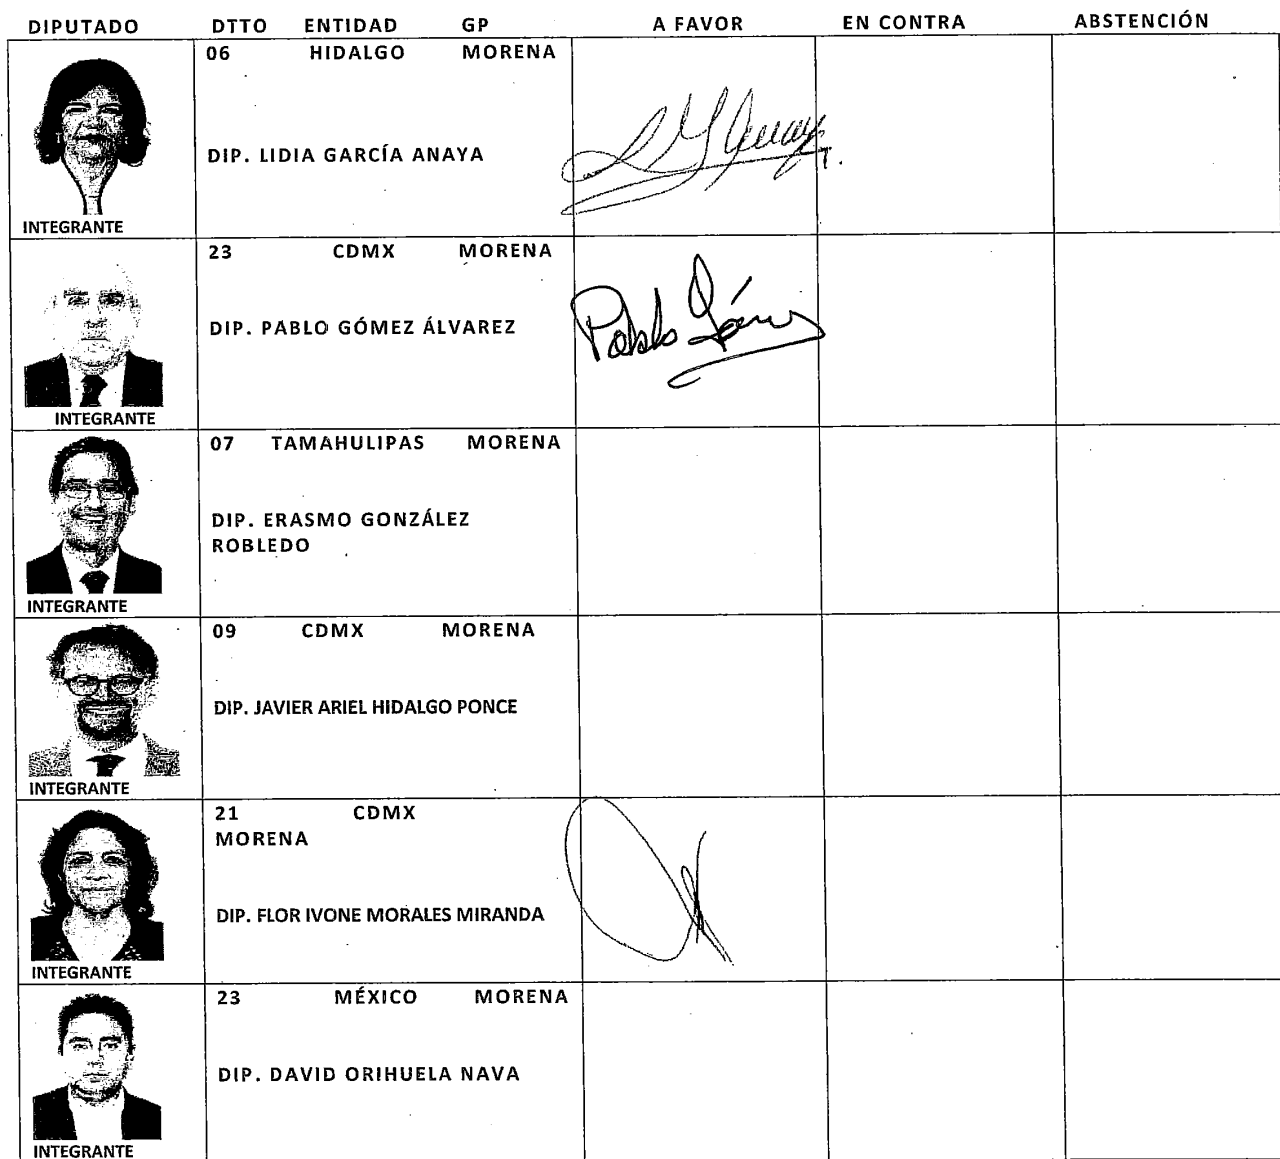 DIPUTADO DTTO ENTIDAD GP A FAVOR EN CONTRA ABSTENCIÓN
06 HIDALGO MORENA
DIP. LIDIA GARCÍA ANAYA
INTEGRANTE
23 CDMX MORENA
DIP. PABLO GÓMEZ ÁLVAREZ
Pablo Gómez
INTEGRANTE
07 TAMAHULIPAS MORENA
DIP. ERASMO GONZÁLEZ
ROBLEDO
INTEGRANTE
09 CDMX MORENA
DIP. JAVIER ARIEL HIDALGO PONCE
INTEGRANTE
21 CDMX
MORENA
DIP. FLOR IVONE MORALES MIRANDA
INTEGRANTE
23 MÉXICO MORENA
DIP. DAVID ORIHUELA NAVA
INTEGRANTE